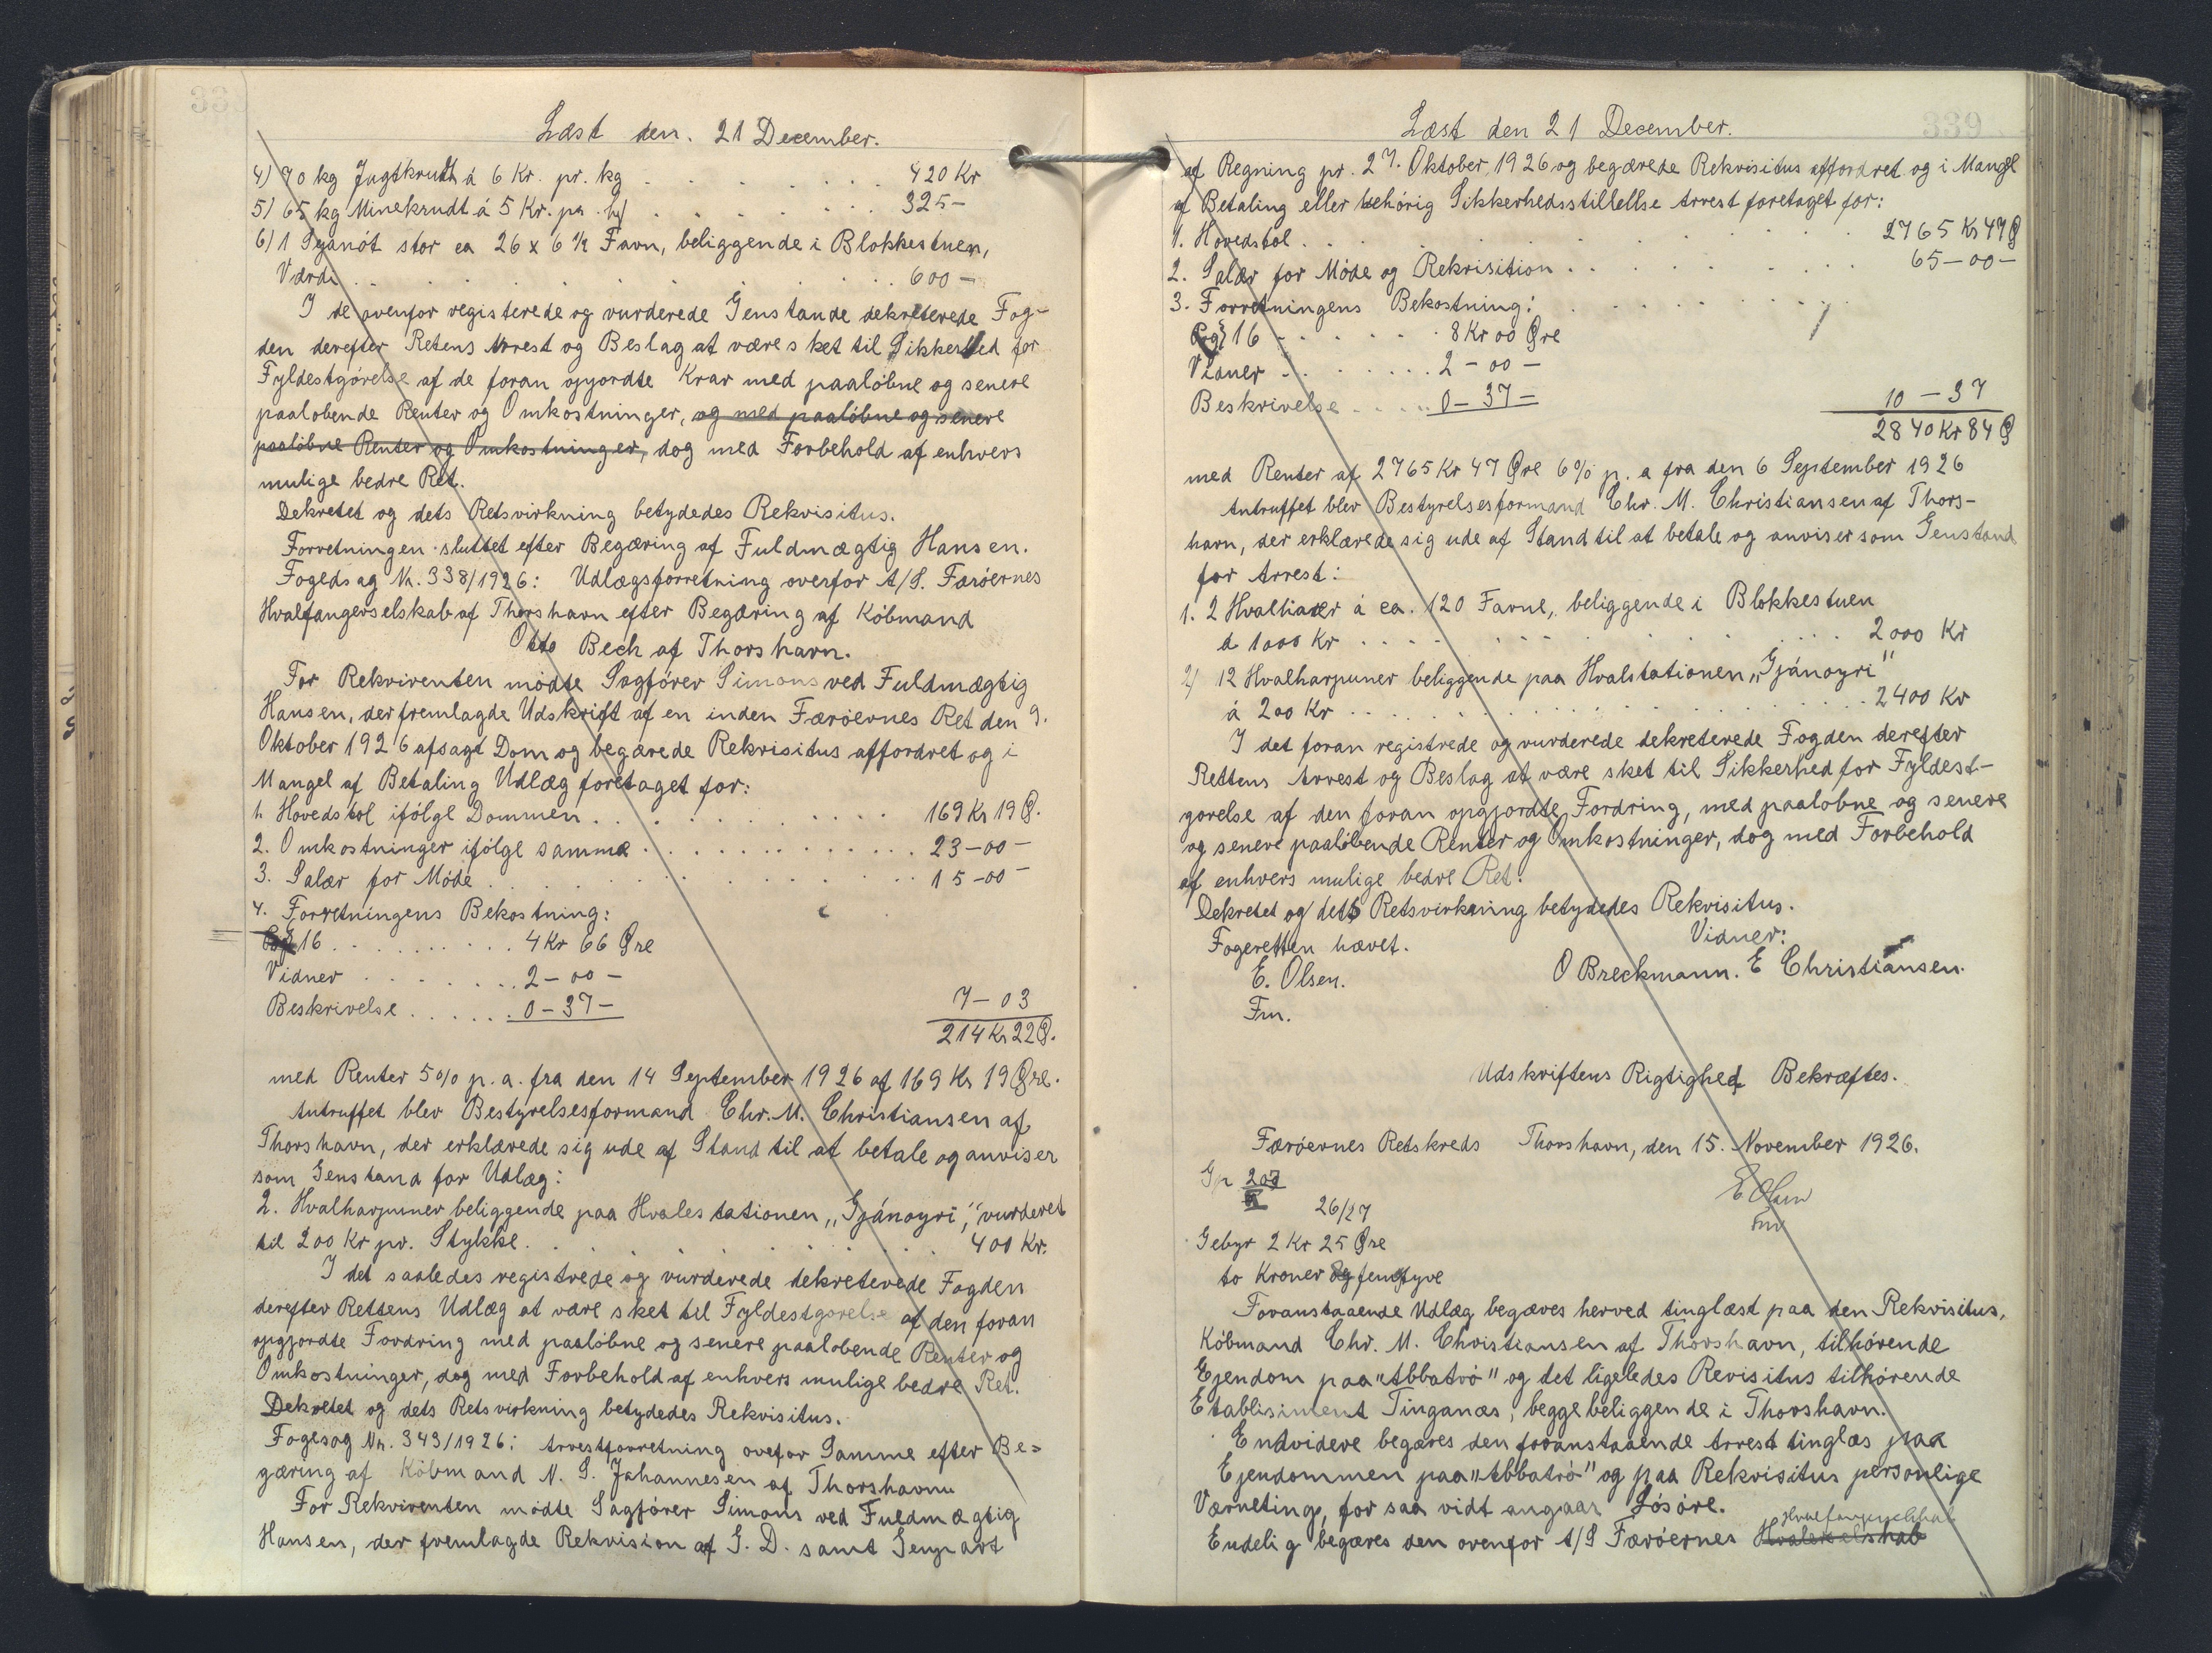 338
Læst den. 21 December.
4) 70 kg Jagtkrudt á 6 Kr. pr. kg . . . . . . . 420 Kr
5) 65 kg Minekrudt á 5 Kr. pr. kg . . . . . . . 325 -
6) 1 stor ca 26 x 6 ½ Favn, beliggende i Blokkestuen,
Værdi . . . . . . . . . . . 600 -
I de ovenfor registerede og vurderede Genstande dekreterede Fog-
den derefter Retens Arrest og Beslag at være sket til Sikkerhed for
Fyldestgörelse af de foran opgjordte Krav med paalöbne og senere
paalobende Renter og Omkostninger, og med paalöbne og senere
paalöbne Renter og Omkostninger, dog med Forbehold af enhvers
mulige bedre Ret.
Dekretet og dets Retsvirkning betydedes Rekvisitus.
Forretningen sluttet efter Begæring af Fuldmægtig Hansen.
Fogedsag Nr. 338/1926: Udlægsforretning overfor A/S. Færöernes
Hvalfangerselskab af Thorshavn efter Begæring af Köbmand
Otto Bech af Thorshavn.
For Rekvirenten mödte Sagförer Simons ved Fuldmægtig
Hansen, der fremlagde Udskrift af en inden Færöernes Ret den 9.
Oktober 1926 afsagt Dom og begærede Rekvisitus affordret og i
Mangel af Betaling Udlæg foretaget for:
1. Hovedstol ifölge Dommen . . . . . . . . 169 Kr 19 Ø.
2. Omkostninger ifölge samme . . . . . . . . 23 - 00 -
3. Salær for Möde . . . . . . . . . . 15 - 00 -
4. Forretningens Bekostning:
§ 16 . . . . . . . . . . 4 Kr 66 Øre
Vidner . . . . . . . . 2 - 00 -
Beskrivelse . . . . . . 0 - 37 -
7 - 03
214 Kr 22 Ø.
med Renter 5 o/o p. a. fra den 14 September 1926 af 169 Kr 19 Øre.
Antruffet blev Bestyrelsesformand Chr. M. Christiansen af
Thorshavn, der erklærede sig ude af Stand til at betale og anviser
som Genstand for Udlæg:
2. Hvalharpuner beliggende paa Hvalestationen „Gjánoyri," vurderet
til 200 Kr pr. Stykke . . . . . . . . . . 400 Kr.
I det saaledes registrede og vurderede dekreterede Fogden
derefter Rettens Udlæg at være sket til Fyldestgorelse af den foran
opgjordte Fordring med paalöbne og senere paalobende Renter og
Omkostninger, dog med Forbehold af enhvers mulige bedre Ret.
Dekretet og dets Retsvirkning betydedes Rekvisitus.
Fogesag Nr. 343/1926: Arrestforretning overfor Samme efter Be=
gæring af Köbmand N. S. Johannesen af Thorshavn
For Rekvirenten mödte Sagförer Simons ved Fuldmægtig
Hansen, der fremlagde Rekvision af G. D. samt Genpart
339
Læst den 21 December.
af Regning pr. 27. Oktober, 1926 og begærede Rekvisitus affordret og i Mangel
af Betaling eller behörig Sikkerhedsstillellse Arrest foretaget for:
1. Hovedstol . . . . . . . . . . 2765 Kr 47 Ø
2. Salær for Möde og Rekrisition . . . . . . . 65 - 00 -
3. Forretningens Bekostning: . . . . . . . .
§ 16 . . . . . . 8 Kr 00 Øre
Vidner . . . . . . . . 2 - 00 -
Beskrivelse . . . . . 0 - 37 -
10 - 37
2840 Kr 84 Ø
med Renter af 2765 Kr 47 Øre 6 % p. a fra den 6 September 1926
Antruffet blev Bestyrelsesformand Chr. M. Christiansen af Thors-
havn, der erklærede sig ude af Stand til at betale og anviser som Genstand
for Arrest:
1. 2 Hvalliner á ca. 120 Favne, beliggende i Blokkestuen
á 1000 Kr . . . . . . . . . . . . 2000 Kr
2) 12 Hvalharpuner beliggende paa Hvalstationen „Gjánoyri"
á 200 Kr . . . . . . . . . . . . 2400 Kr
I det foran registrede og vurderede dekreterede Fogden derefter
Rettens Arrest og Beslag at være sket til Sikkerhed for Fyldest-
gorelse af den foran opgjordte Fordring, med paalobne og senere
og senere paalöbende Renter og Omkostninger, dog med Forbehold
af enhvers mulige bedre Ret.
Dekretet og dets Retsvirkning betydedes Rekvisitus.
Fogeretten hævet. Vidner:
E. Olsen. O Breckmann. E Christiansen.
Fm.
Udskriftens Rigtighed Bekræftes.
Færöernes Retskreds Thorshavn, den 15. November 1926.
Gp 207
E Olsen
26/27
Fm
Gebyr 2 Kr 25 Øre
to Kroner og femogtyve
Foranstaaende Udlæg begæres herved tinglæst paa den Rekvisitus,
Köbmand Chr. M. Christiansen af Thorshavn, tilhørende
Ejendom paa "Abbatrö" og det ligeledes Revisitus tilhørende
Etablisiment Tinganæs, begge beliggende i Thorshavn.
Endvidere begæres den foranstaaende Arrest tinglæs paa
Ejendommen paa "Abbatrö" og paa Rekvisitus personlige
Værneting, for saa vidt angaar Lösöre.
Endelig begæres den ovenfor A/S Færöernes Hvalerselskab